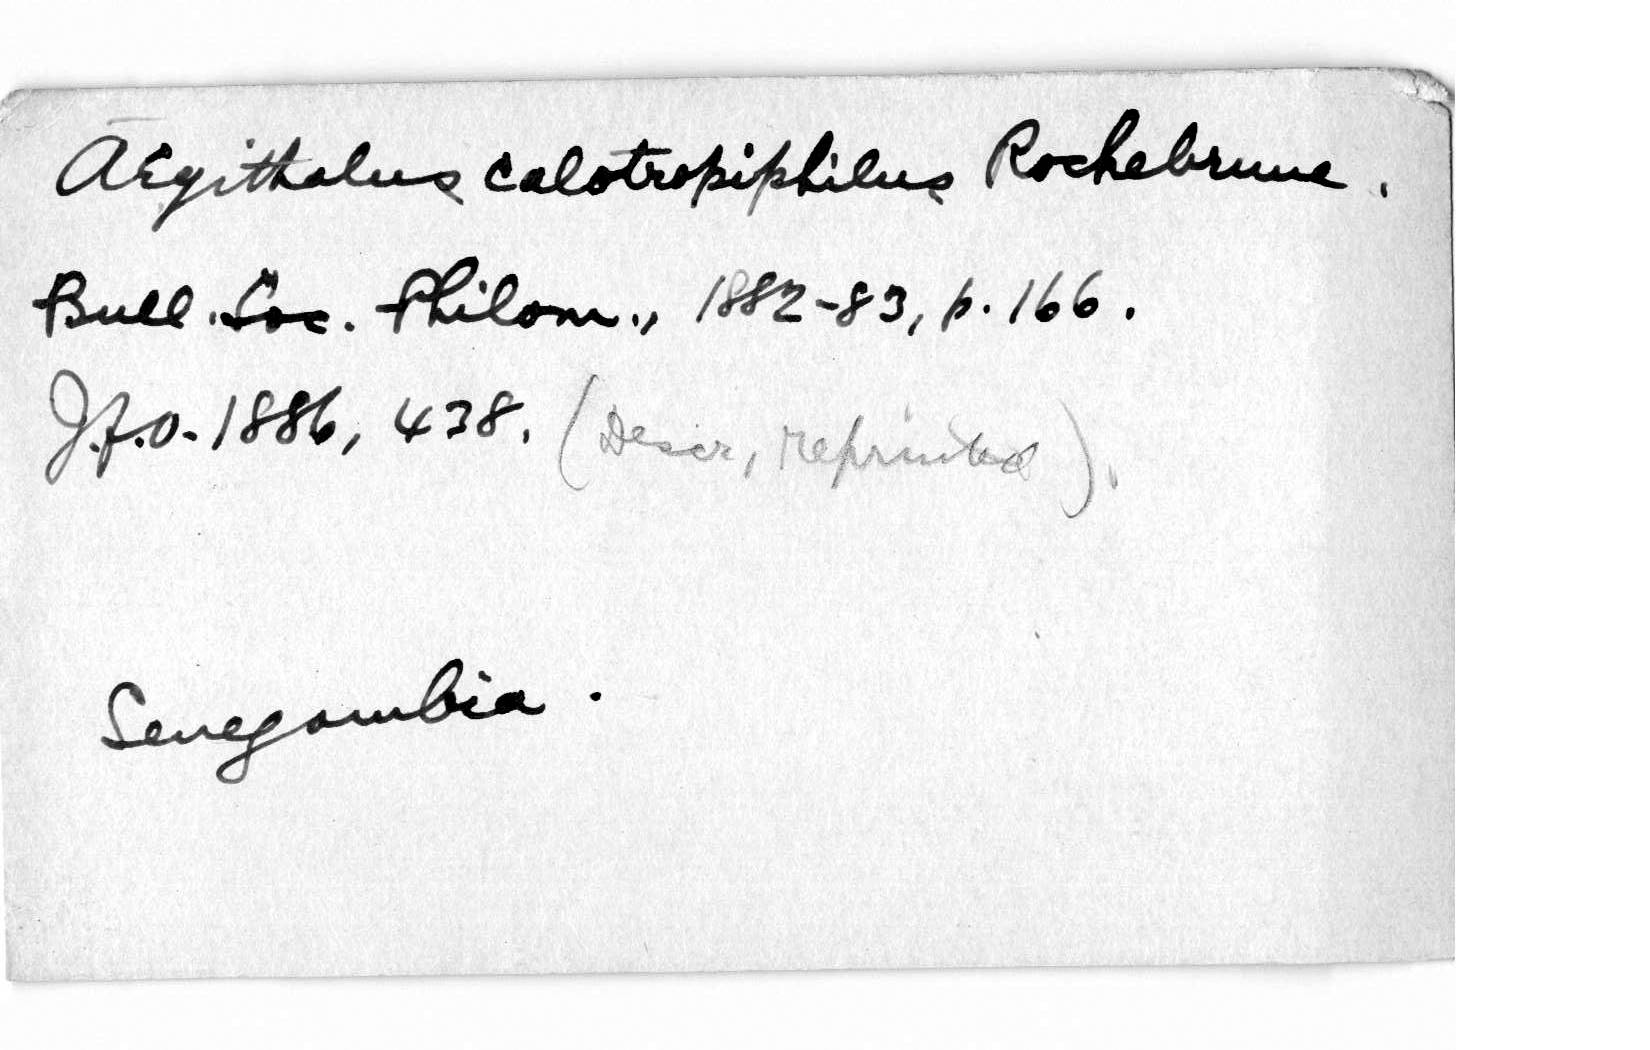 Aegithalus calotropiphilus Rochebrune.
Bull. Soc. Philom., 1882-83, p. 166.
J.f.O. 1886, 438. (Descr, reprinted).
Senegambia.